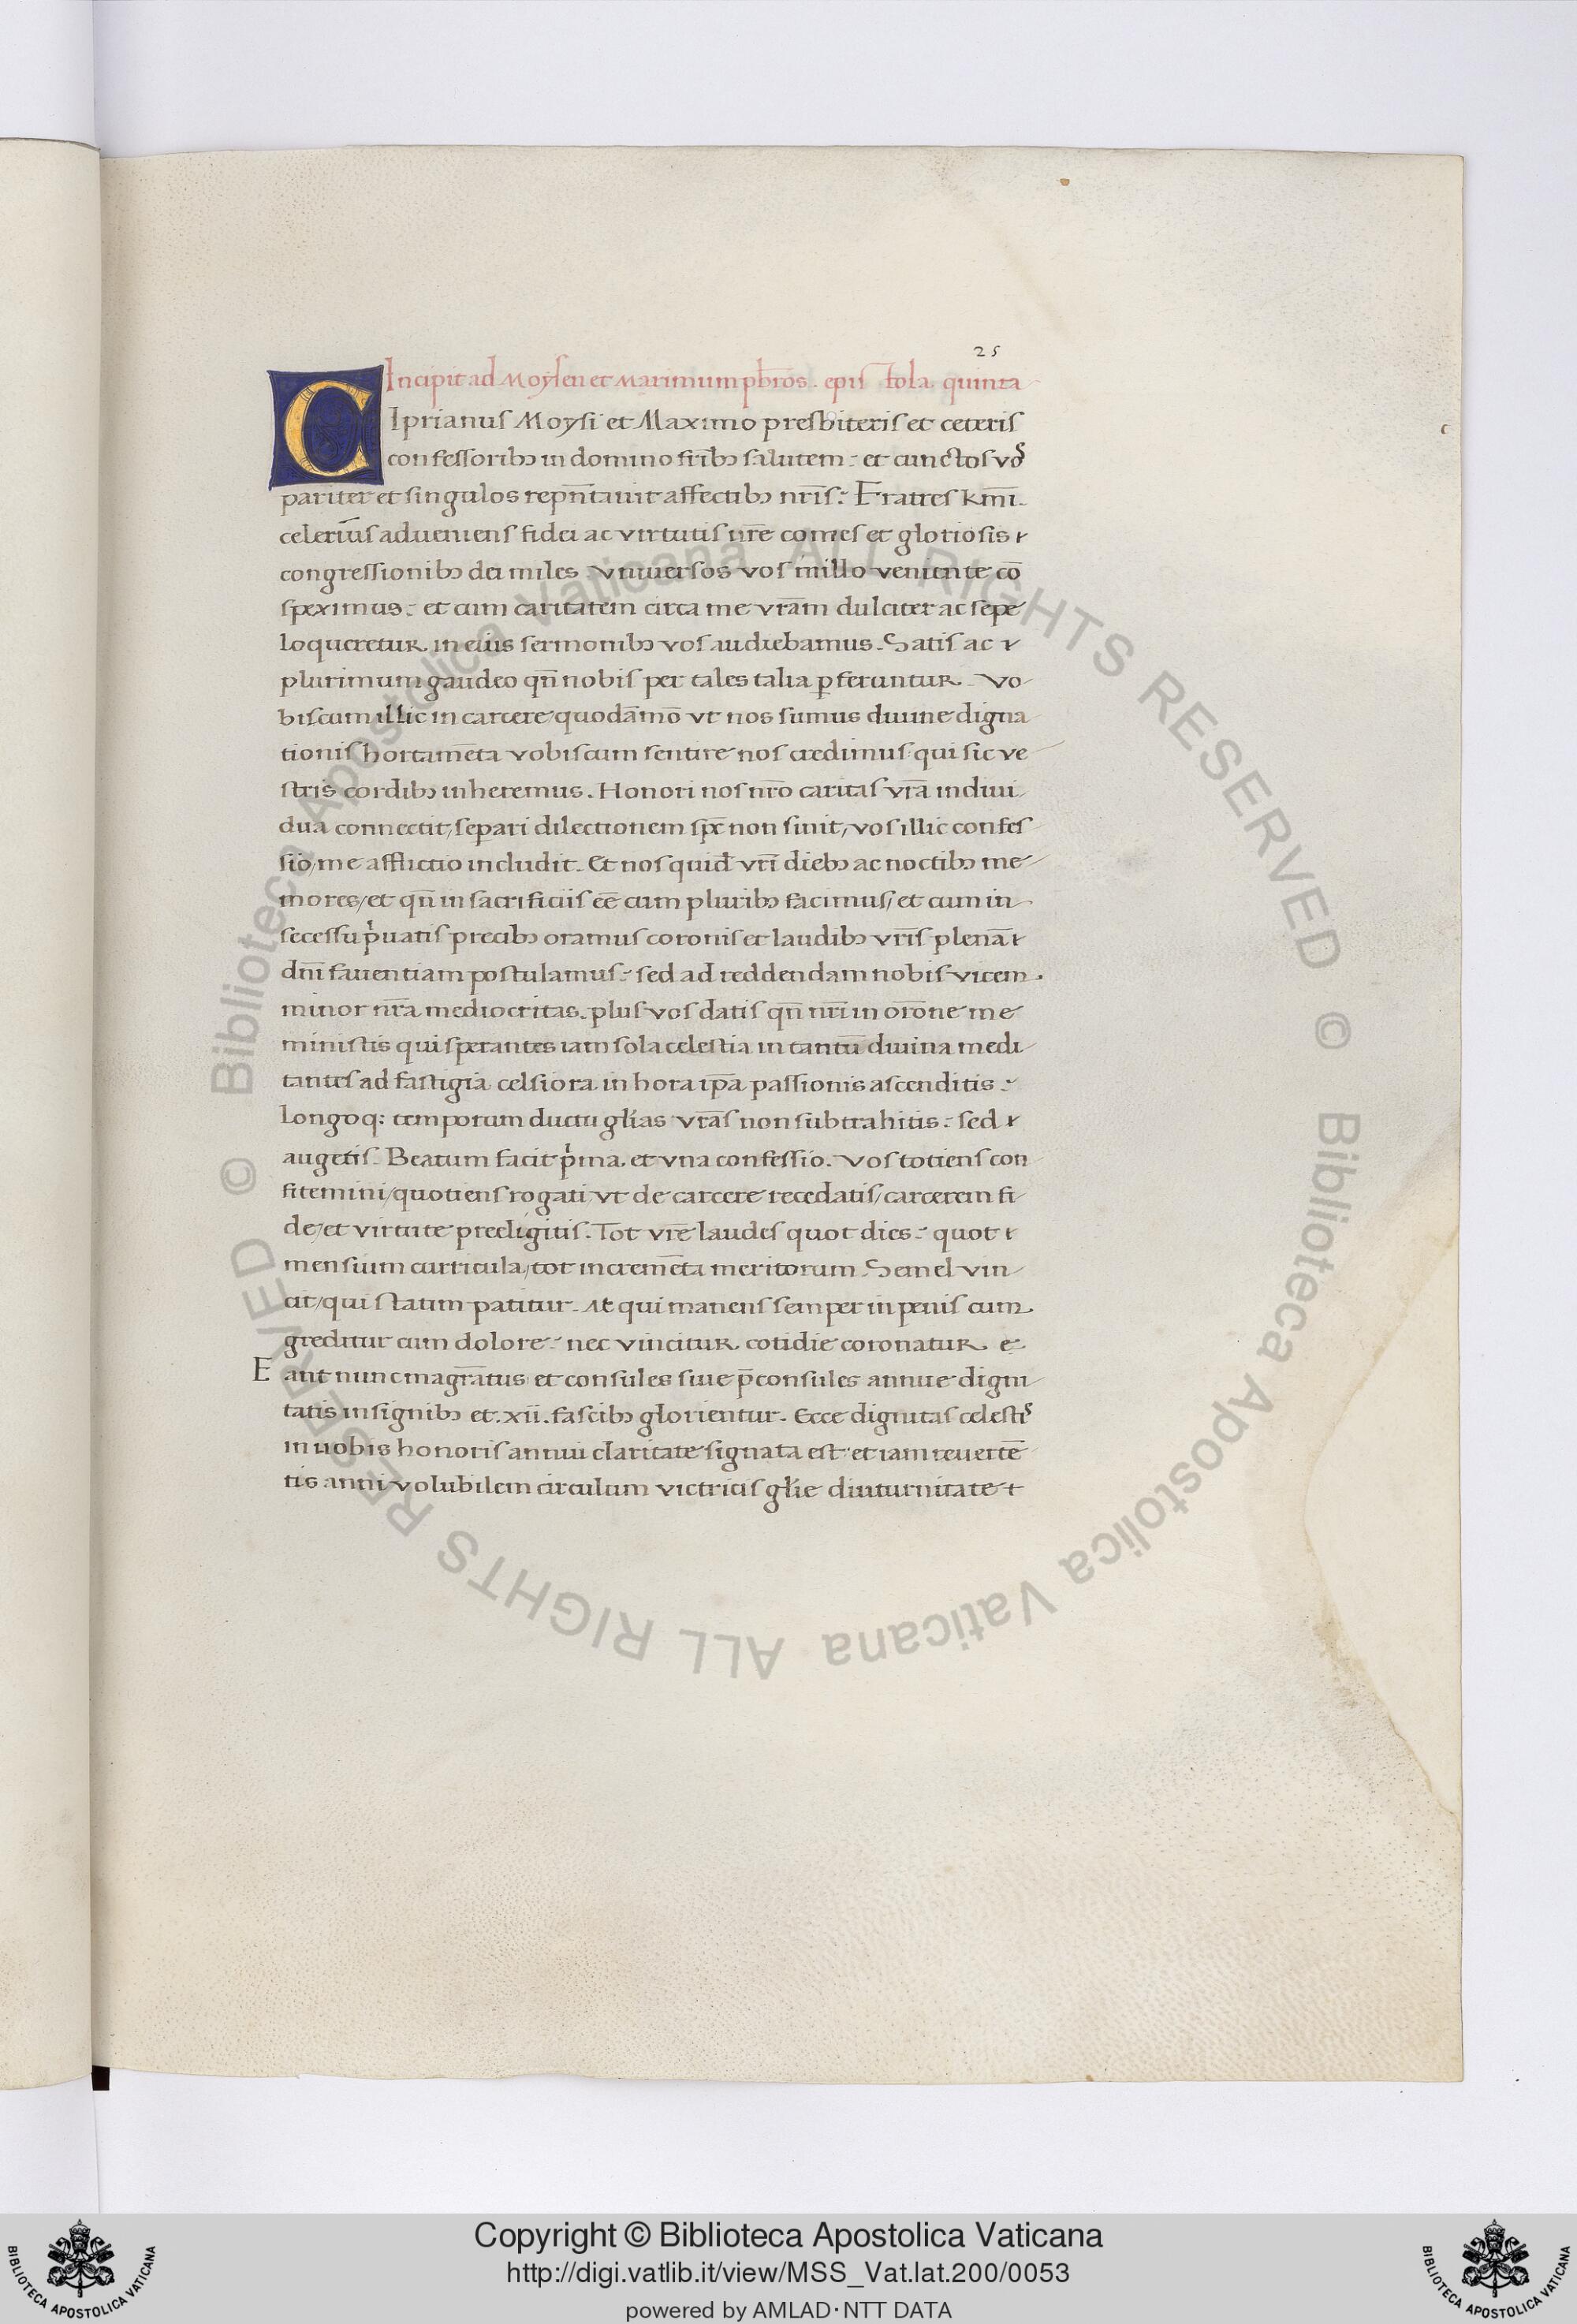 25
Incipit ad Moysen et Maximum pb̅ros. epis tola quinta
CIprianus Moysi et Maximo presbiteris et ceteris
confessoribꝫ in domino fr̅ibꝫ salutem: et cunctos vos
pariter et singulos repn̅tauit affectibꝫ nr̅is: Fratres km̅i.
celerius adueniens fidei ac virtutis nr̅e comes et gloriosis
congressionibꝫ dei miles. vniuersos vos in illo veniente co̅
speximus: et cum caritatem circa me vr̅am dulciter ac sepe
loqueretur. in eius sermonibꝫ vos audiebamus. Satis ac
plurimum gaudeo qn̅ nobis per tales talia ꝑferuntur. Vo
biscum illic in carcere quoda̅mo̅ vt nos sumus diuine digna
tionis hortame̅ta vobiscum sentire nos credimus qui sic ve
stris cordibꝫ inheremus. Honori nos nr̅o caritas vr̅a indiui
dua connectit, separi dilectionem spc̅ non sinit, vos illic confes
sio, me afflictio includit. Et nos quid̅ vr̅i diebꝫ ac noctibꝫ me
mores, et qn̅ in sacrificiis ee̅ cum pluribꝫ facimus, et cum in
secessu p̍uatis precibꝫ oramus coronis et laudibꝫ vr̅is plena̅
dn̅i fauentiam postulamus: sed ad reddendam nobis vicem
minor nr̅a mediocritas. plus vos datis qn̅ nr̅i in oro̅ne me
ministis qui sperantes iam sola celestia in tantu̅ diuina medi
tantes ad fastigia celsiora in hora ip̅a passionis ascenditis:
Longoq: temporum ductu gl̅ias vr̅as non subtrahitis: sed
augetis. Beatum facit p̍ma et vna confessio. Vos totiens con
fitemini, quotiens rogati vt de carcere recedatis, carcerem fi
de, et virtute preeligitis. Tot vr̅e laudes quot dies: quot
mensium curricula, tot increme̅ta meritorum. Semel vin
cit, qui statim patitur. At qui manens semper in penis cum
greditur cum dolore: nec vincitur cotidie coronatur. e
E ant nunc magr̅atus et consules siue p̅consules annue digni
tatis insignibꝫ et .xii. fascibꝫ glorientur. Ecce dignitas celestis
in uobis honoris annui claritate signata est et iam reuerte̅
tis anni volubilem circulum victricis gl̅ie diuturnitate
c
© Biblioteca Apostolica Vaticana ALL RIGHTS RESERVED
© Biblioteca Apostolica Vaticana ALL RIGHTS RESERVED
Copyright © Biblioteca Apostolica Vaticana
http://digi.vatlib.it/view/MSS_Vat.lat.200/0053
powered by AMLAD·NTT DATA
BIBLIOTECA APOSTOLICA VATICANA
BIBLIOTECA APOSTOLICA VATICANA